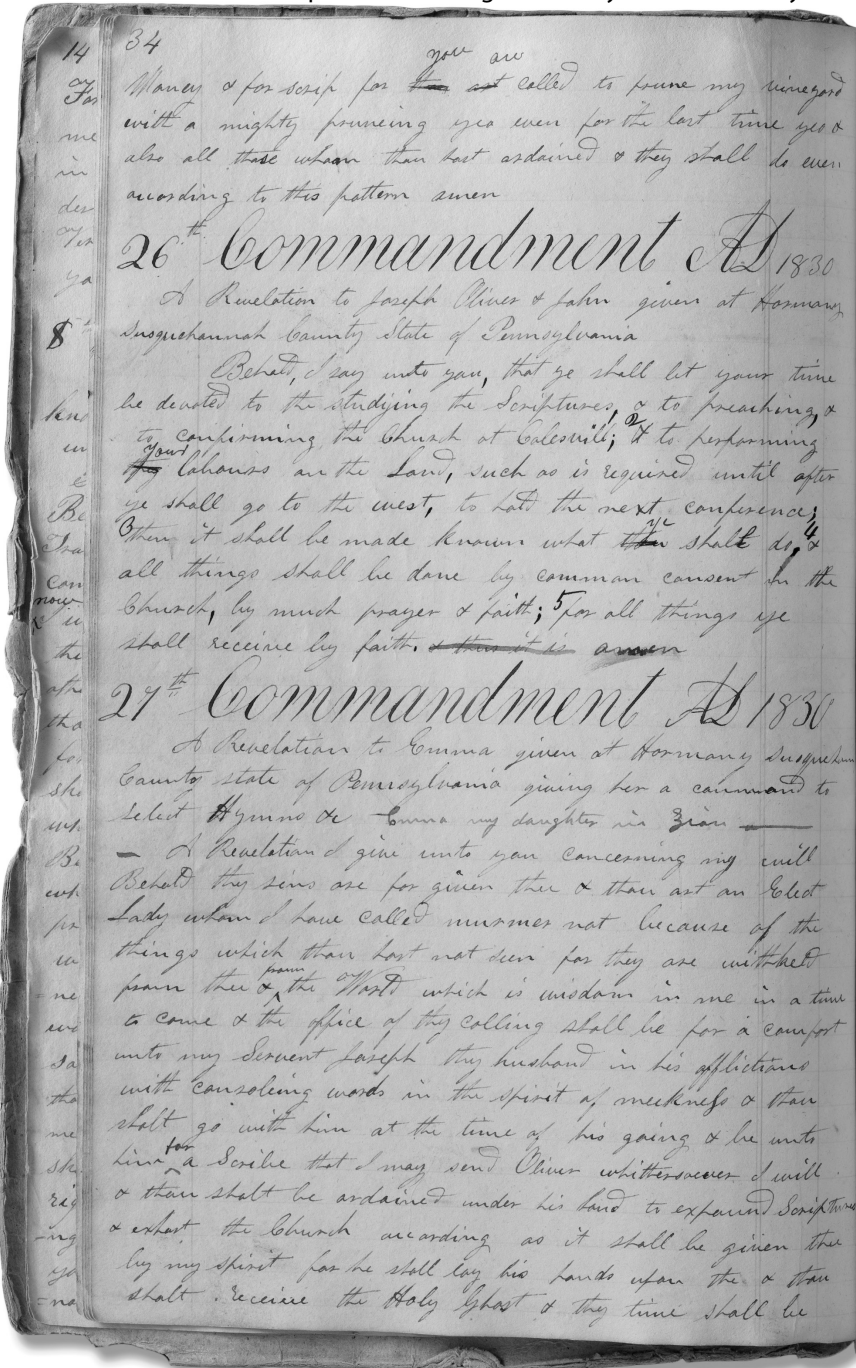 34
you are
Money & for scrip for thou art called to prune my vineyard
with a mighty pruneing yea even for the last time yea &
also all those whom thou hast ordained & they shall do even
according to this pattern amen
26th Commandment AD 1830
A Revelation to Joseph Oliver & John given at Harmony
Susquehannah County State of Pennsylvania
Behold, I say unto you, that ye shall let your time
be devoted to the studying the Scriptures, & to preaching, &
to confirming the Church at Colesvill; 2 & to performing
your
thy labours on the Land, such as is required until after
ye shall go to the west, to hold the next conference;
3 then it shall be made known what thou ye shalt do, 4 &
all things shall be done by common consent in the
Church, by much prayer & faith; 5 for all things ye
shall receive by faith. & thus it is amen
27th Commandment AD 1830
A Revelation to Emma given at Harmony Susquehan
County state of Pennsylvania giving her a command to
select Hymns &c Emma my daughter in Zion
A Revelation I give unto you concerning my will
Behold thy sins are for given thee & thou art an Elect
Lady whom I have called murmer not because of the
things which thou hast not seen for they are withheld
from thee & from the World which is wisdom in me in a time
to come & the office of thy calling shall be for a comfort
unto my Servent Joseph thy husband in his afflictions
with consoleing words in the spirit of meekness & thou
shalt go with him at the time of his going & be unto
him for a Scribe that I may send Oliver whithersoever I will
& thou shalt be ordained under his hand to expound Scriptures
& exhort the Church according as it shall be given thee
by my spirit for he shall lay his hands upon the & thou
shalt receive the Holy Ghost & thy time shall be